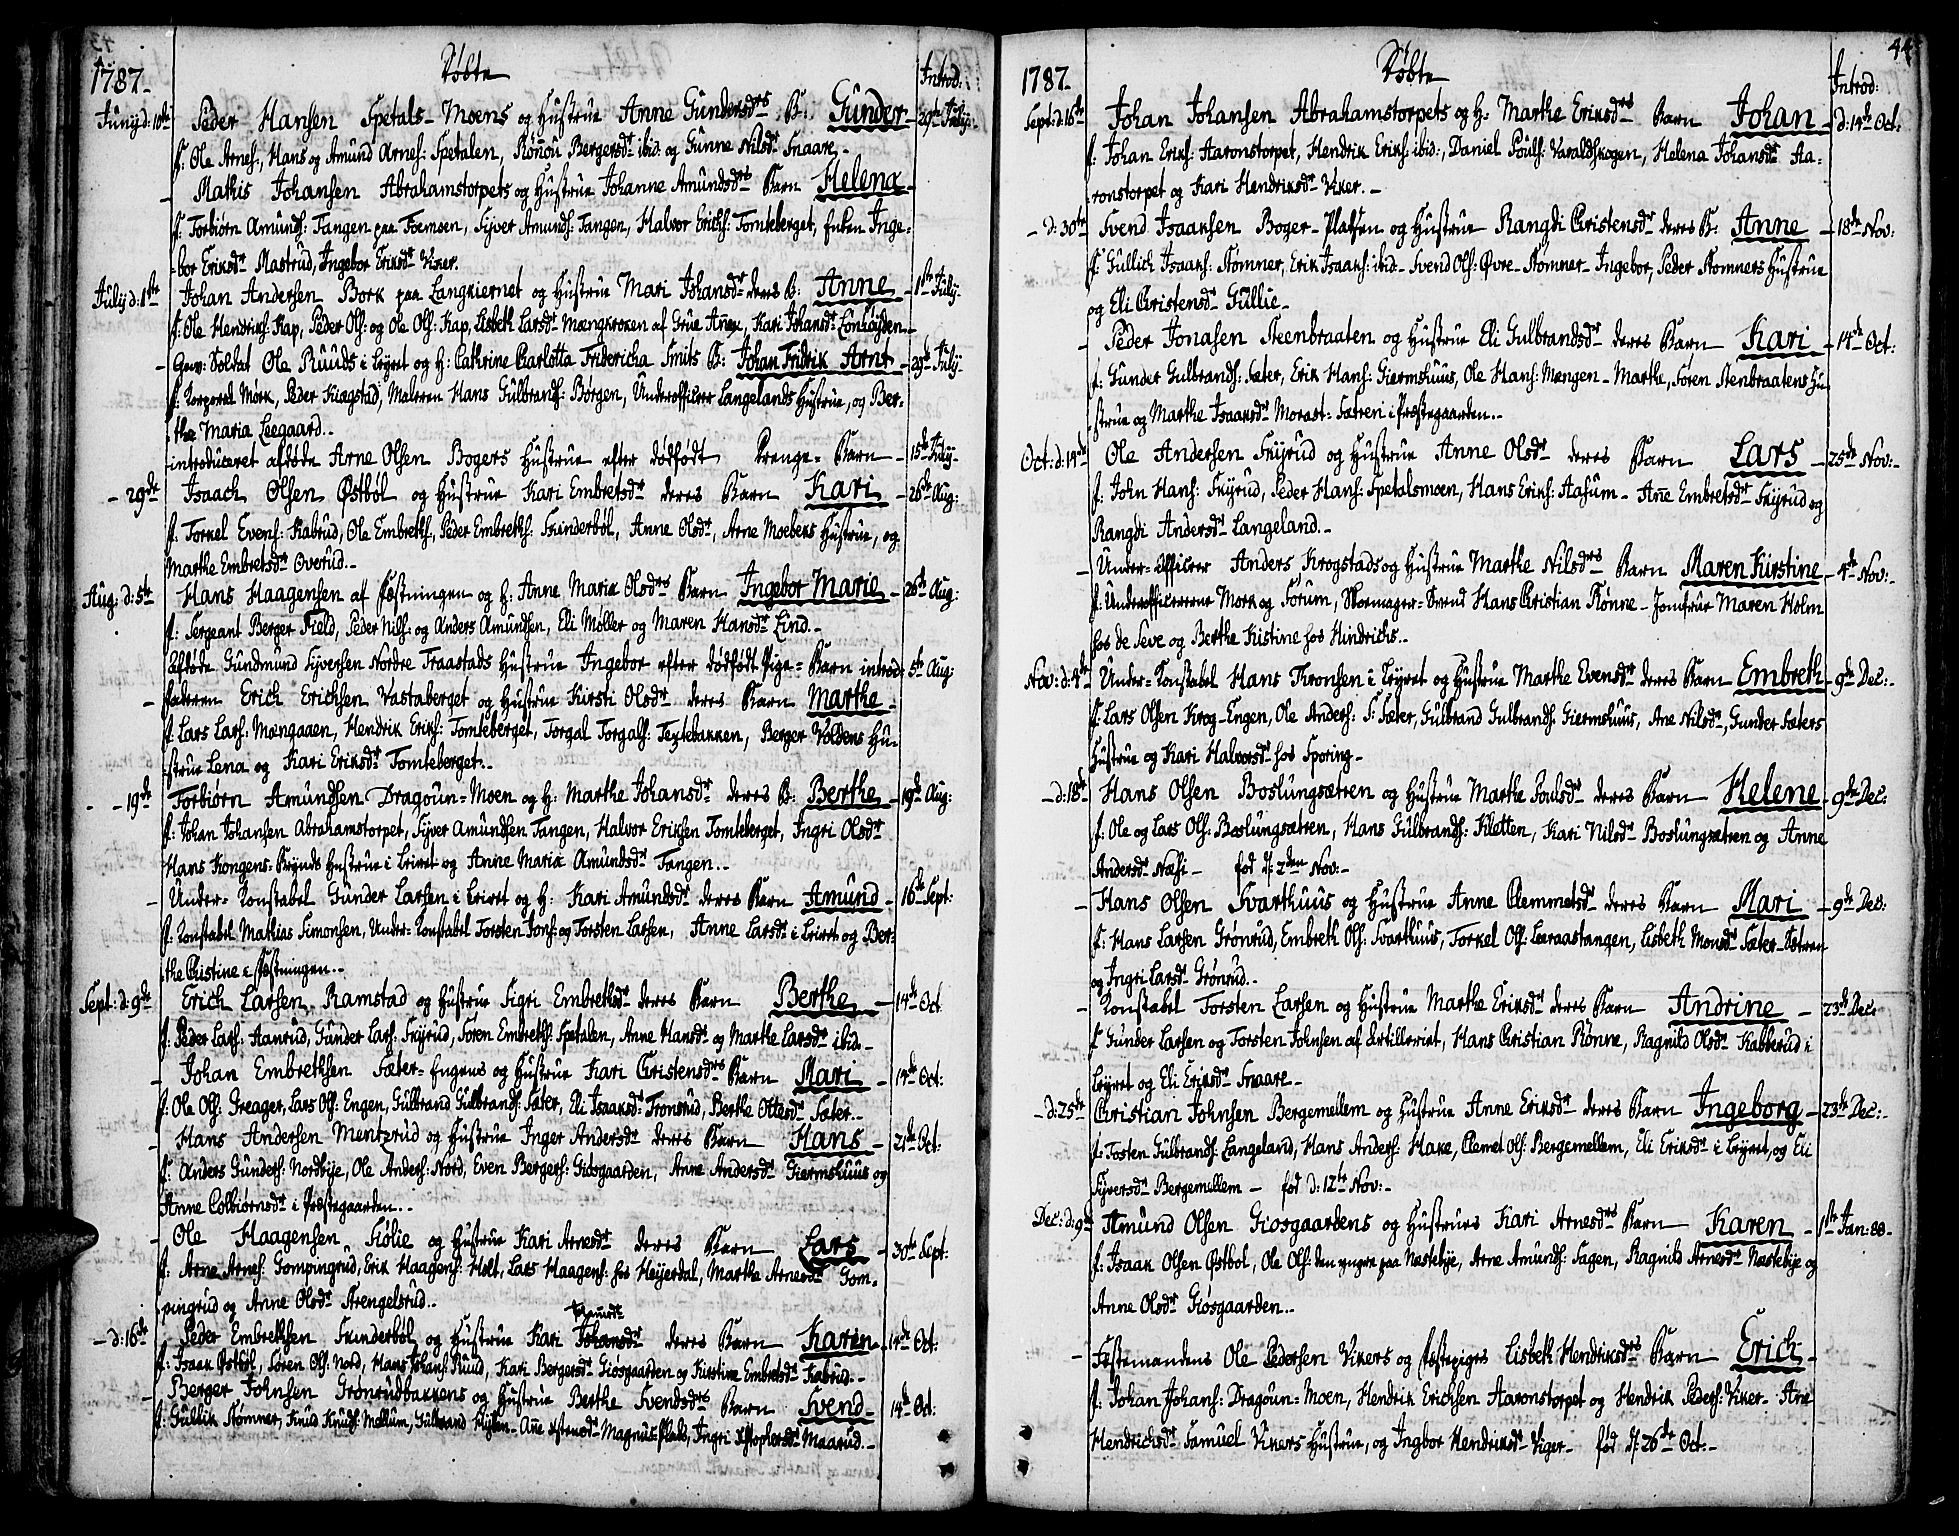 1787. Döbte Introd:
Juny d: 10de Peder Hansen Spetals-Moens og Hustrue Anne Gundersdrs B: Gunder 29de July
f: Ole Arnes:, Hans og Amund Arnes: Spetalen, Rönnou Bergersdr ibid: og Gunne Nilsdr Snaare.
Mathis Johansen Abrahamstorpets og Hustrue Johanne Amundsdrs Barn Helena
f: Torbiörn Amunds: Tangen paa Foemsen, Syver Amunds: Tangen, Halvor Erichs: Tomteberget, Enken Inge-
bor Eriksdr Mastrud, Ingebor Eriksdr Viker.
July d: 1ste Johan Andersen Bork paa Langkiernet og Hustrue Mari Johansdr deres B: Anne 1ste July
f: Ole Hendriks: Kap, Peder Ols: og Ole Ols: Kap, Lisbeth Larsdr Mængkroken af Grue Anex, Kari Johansdr Lönhöyden
Gew: Soldat Ole Ruuds i Leyret og H: Cathrine Carlotta Fridericha Smits B: Johan Fridrik Arnt 29de July
f: Korporal Mörk, Peder Kiagstad, Maleren Hans Gulbrands: Börgen, Underofficer Langelands Hustrue, og Ber-
the Maria Leegaard.
introduceret afdöde Arne Olsen Bogers Hustrue efter dödfödt Drenge-Barn 15de July
29de Isaach Olsen Östböl og Hustrue Kari Embretsdr deres Barn Kari 26de Aug:
f: Torkel Evens: Kabrud, Ole Embreths:, Peder Embreths: Skinderböl, Anne Olsdr, Arne Moebeks Hustrue, og
Marthe Embretsdr Overud.
Aug: d: 5te Hans Haagensen af Fæstningen og H: Anne Maria Olsdrs Barn Ingebor Marie 26de Aug:
f: Sergeant Berger Field, Peder Nils: og Anders Amundsen, Eli Möller og Maren Hansdr Lind.
Afdöde Gundmund Syversen Nordre Traastads Hustrue Ingebor efter dödfödt Pige-Barn introd: 5te Aug:
Erich Erichsen Vastaberget og Hustrue Kirsti Olsdr deres Barn Marthe
f: Lars Lars: Mængaaen, Hendrik Eriks: Tomteberget, Torgal Torgals: Teptebakken, Berger Voldens Hu-
strue Lena og Kari Eriksdr Tomteberget.
19de Torbiörn Amundsen Dragoun-Moen og H: Marthe Johansdr deres B: Berthe 19de Aug:
f: Johan Johansen Abrahamstorpet, Syver Amundsen Tangen, Halvor Eriksen Tomteberget, Ingri Olsdr
Hans Kongens-Brynds Hustrue i Leiret og Anne Maria Amundsdr Tangen.
Under-Konstabel Gunder Larsen i Leiret og H: Kari Amundsdr deres Barn Amund 16de Sept:
f: Konstabel Mathias Simonsen, Under-Konstabel Torsten Jons: og Torsten Larsen, Anne Larsdr i Leiret og Ber-
the Christine i Fæstningen.
Sept: d: 9de Erich Larsen Ramstad og Hustrue Sigri Embrethsdr deres Barn Berthe 14de Oct
f: Peder Lars: Aanrud, Gunder Lars: Skyrud, Sören Embreths: Spetalen, Anne Hansdr og Marthe Larsdr ibid.
Johan Embrethsen Sæter-Engens og Hustrue Kari Christensdrs Barn Mari 14de Oct:
f: Ole Ols: Greager, Lars Ols: Engen, Gulbrand Gulbrands: Sæter, Eli Isaaksdr Tronsrud, Berthe Ottesdr Sæter.
Hans Andersen Mentzrud og Hustrue Inger Andersdr deres Barn Hans 21de Oct:
f: Anders Gunders: Nordbye, Ole Anders: Nord, Even Bergers: Giösgaarden, Anne Andersdr Giermshuus og
Anne Colbiörnsdr i Præstegaarden.
Ole Haagensen Siölie og Hustrue Kari Arnesdr deres Barn Lars 30de Sept:
f: Arne Arnes: Gompingrud, Erik Haagens: Holt, Lars Haagens: hos Heyerdal, Marthe Arnesdr Gom-
pingrud og Anne Olsdr Strengelsrud.
d: 16de Peder Embrethsen Skinderböl og Hustrue Kari Johansdr deres Barn Karen 14de Oct:
f: Isaak Östböl, Sören Ols: Nord, Hans Johans: Ruud, Kari Bergersdr Giösgaarden og Kirstine Embretsdr Kabrud.
Berger Johnsen Grönrudbakkens og Hustrue Berthe Svendsdrs Barn Svend 14de Oct:
f: Gullik Stömner, Knud Knuds: Mellum, Gulbrand Klætten, Anne Xstensdr Magnus-Plads, Ingri Xstophersdr Maarud.

1787. Döbte Introd: 44
Sept: d: 16de Johan Johansen Abrahamstorpets og H: Marthe Eriksdrs Barn Johan d: 14de Oct:
f: Johan Eriks: Aaronstorpet, Hendrik Eriks: ibid:, Daniel Pouls: Varaldskogen, Helena Johansdr Aa-
ronstorpet og Kari Hendriksdr Viker.
d: 30te Svend Isaaksen Boger-Platsen og Hustrue Rangdi Christensdr deres B: Anne 18de Nov:
f: Gullich Isaaks: Stömner, Erik Isaaks: ibid. Svend Ols: Övre-Stömner, Ingebor, Peder Stömners Hustrue
og Eli Christensdr Gullie.
Peder Jonasen Steenbraaten og Hustrue Eli Gulbrandsdr deres Barn Kari 14de Oct:
f: Gunder Gulbrands: Sæter, Erik Hans: Giermshuus, Ole Hans: Mængen, Marthe, Sören Stenbraatens Hu-
strue og Marthe Isaaksdr Morast-Sætren i Præstegaarden.
Oct: d: 14de Ole Andersen Skyrud og Hustrue Anne Olsdr deres Barn Lars 25de Nov:
f: John Hans: Skyrud, Peder Hans: Spetalsmoen, Hans Eriks: Aasum, Ane Embretsdr Skyrud og
Rangdi Andersdr Langeland.
Under-Officer Anders Krogstads og Hustrue Marthe Nilsdrs Barn Maren Kirstine 4de Nov:
f: Underofficererne Mork og Sorum, Skomager-Svend Hans Christian Rönne, Jomfrue Maren Holm
hos de Seve og Berthe Kistine hos Hindrichs.
Nov: d: 4de Under-Konstabel Hans Thronsen i Leyret og Hustrue Marthe Evensdr deres Barn Embreth 9de Dec:
f: Lars Olsen Krog-Engen, Ole Anders: S: Sæter, Gulbrand Gulbrands: Giermshuus, Ane Nilsdr, Gunder Sæters
Hustrue og Kari Halvorsdr hos Sporing.
d: 18de Hans Olsen Boslungsætren og Hustrue Marthe Poulsdr deres Barn Helene 9de Dec:
f: Ole og Lars Ols: Boslungsætren, Hans Gulbrands: Kletten, Kari Nilsdr Boslungsætren og Anne
Andersdr Næssi. föd d: 2den Nov:
Hans Olsen Svarthuus og Hustrue Anne Clemmetsdr deres Barn Mari 9de Dec:
f: Hans Larsen Grönrud, Embreth Ols: Svarthuus, Torkel Ols: Leeraastangen, Lisbeth Monsdr Sæter-Sætren
og Ingri Larsdr Grönrud.
Konstabel Torsten Larsen og Hustrue Marthe Eriksdr deres Barn Andrine 23de Dec:
f: Gunder Larsen og Torsten Johnsen af Artilleriet, Hans Christian Rönne, Ragnild Olsdr Kabberud i
Leyret og Eli Eriksdr Snaare.
d: 25de Christian Johnsen Bergemellem og Hustrue Anne Eriksdr deres Barn Ingeborg 23de Dec:
f: Tosten Gulbrands: Langeland, Hans Anders: Hake, Clemet Ols: Bergemellem, Eli Eriksdr i Leyret, og Eli
Syversdr Bergemellem. föd d: 12te Nov:
Dec: d: 9de Amund Olsen Giosgaardens og Hustrues Kari Arnesdrs Barn Karen 1ste Jan: 88.
f: Isaak Olsen Östbol, Ole Ols: den yngere paa Næstebye, Arne Amunds: Sagen, Ragnild Arnesdr Næstebye og
Anne Olsdr Giösgaarden.
Festemandens Ole Pedersen Vikers og Fæstepiges Lisbeth Hendriksdrs Barn Erich
f: Johan Johans: Dragoun-Moen, Hendrik Erichsen Aaronstorpet og Hendrik Peders: Viker. Ane
Hendrichsdr Samuel Vikers Hustrue, og Ingbor Hendriksdr Viger. föd d: 26de Oct: